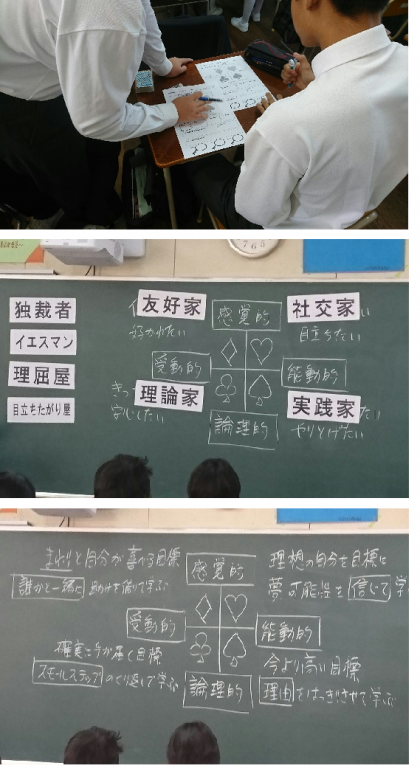 独裁者
イエスマン
理屈屋
目立ちたがり屋
友好家
好かれたい
感覚的
社交家
い
目立ちたい
受動的
能動的
きっ
理論家
実践家
たい
やりとげたい
論理的
まわりと自分が喜べる目標
誰かと一緒に 助けを借りて学ぶ
感覚的
理想の自分を目標に
夢の可能性を信じて学
受動的
能動的
確実に今が届く目標
スモールステップのくり返しで学ぶ
論理的
今より高い目標
理由をはっきりさせて学ぶ